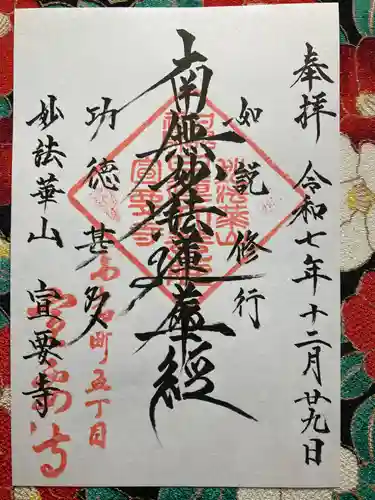 奉拝 令和七年十二月廿九日
如説修行
南無妙法蓮華経
功徳甚多
妙法華山 宣要寺
町五丁目